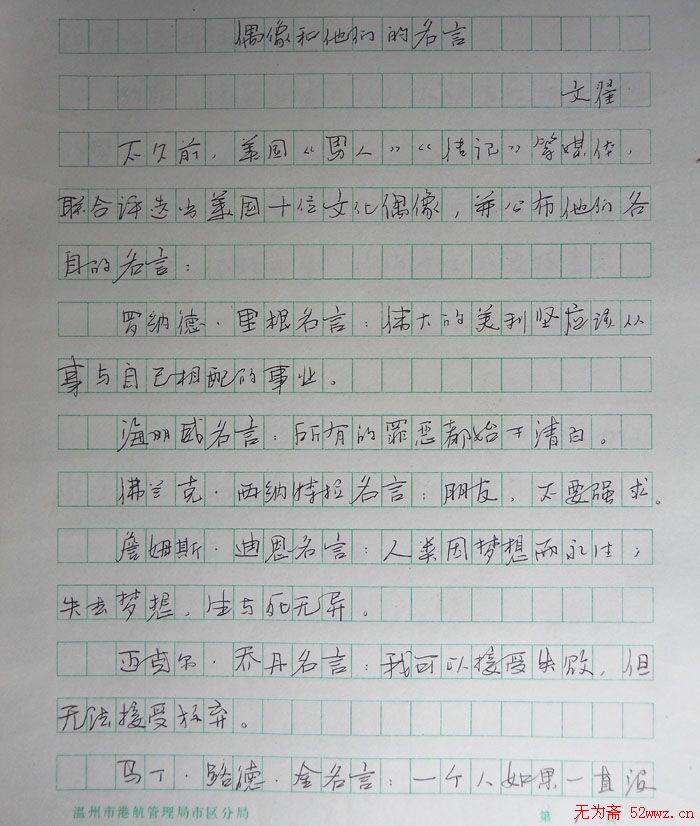 偶像和他们的名言
文耀
不久前，美国《男人》《传记》等媒体，
联合评选出美国十位文化偶像，并公布他们各
自的名言：
罗纳德·里根名言：伟大的美利坚应该从
事与自己相配的事业。
海明威名言：所有的罪恶都始于清白。
佛兰克·西纳特拉名言：朋友，不要强求。
詹姆斯·迪恩名言：人类因梦想而永生；
失去梦想，生与死无异。
迈克尔·乔丹名言：我可以接受失败，但
无法接受放弃。
马丁·路德·金名言：一个人如果一直没
温州市港航管理局市区分局
第
无为斋 52wwz.cn